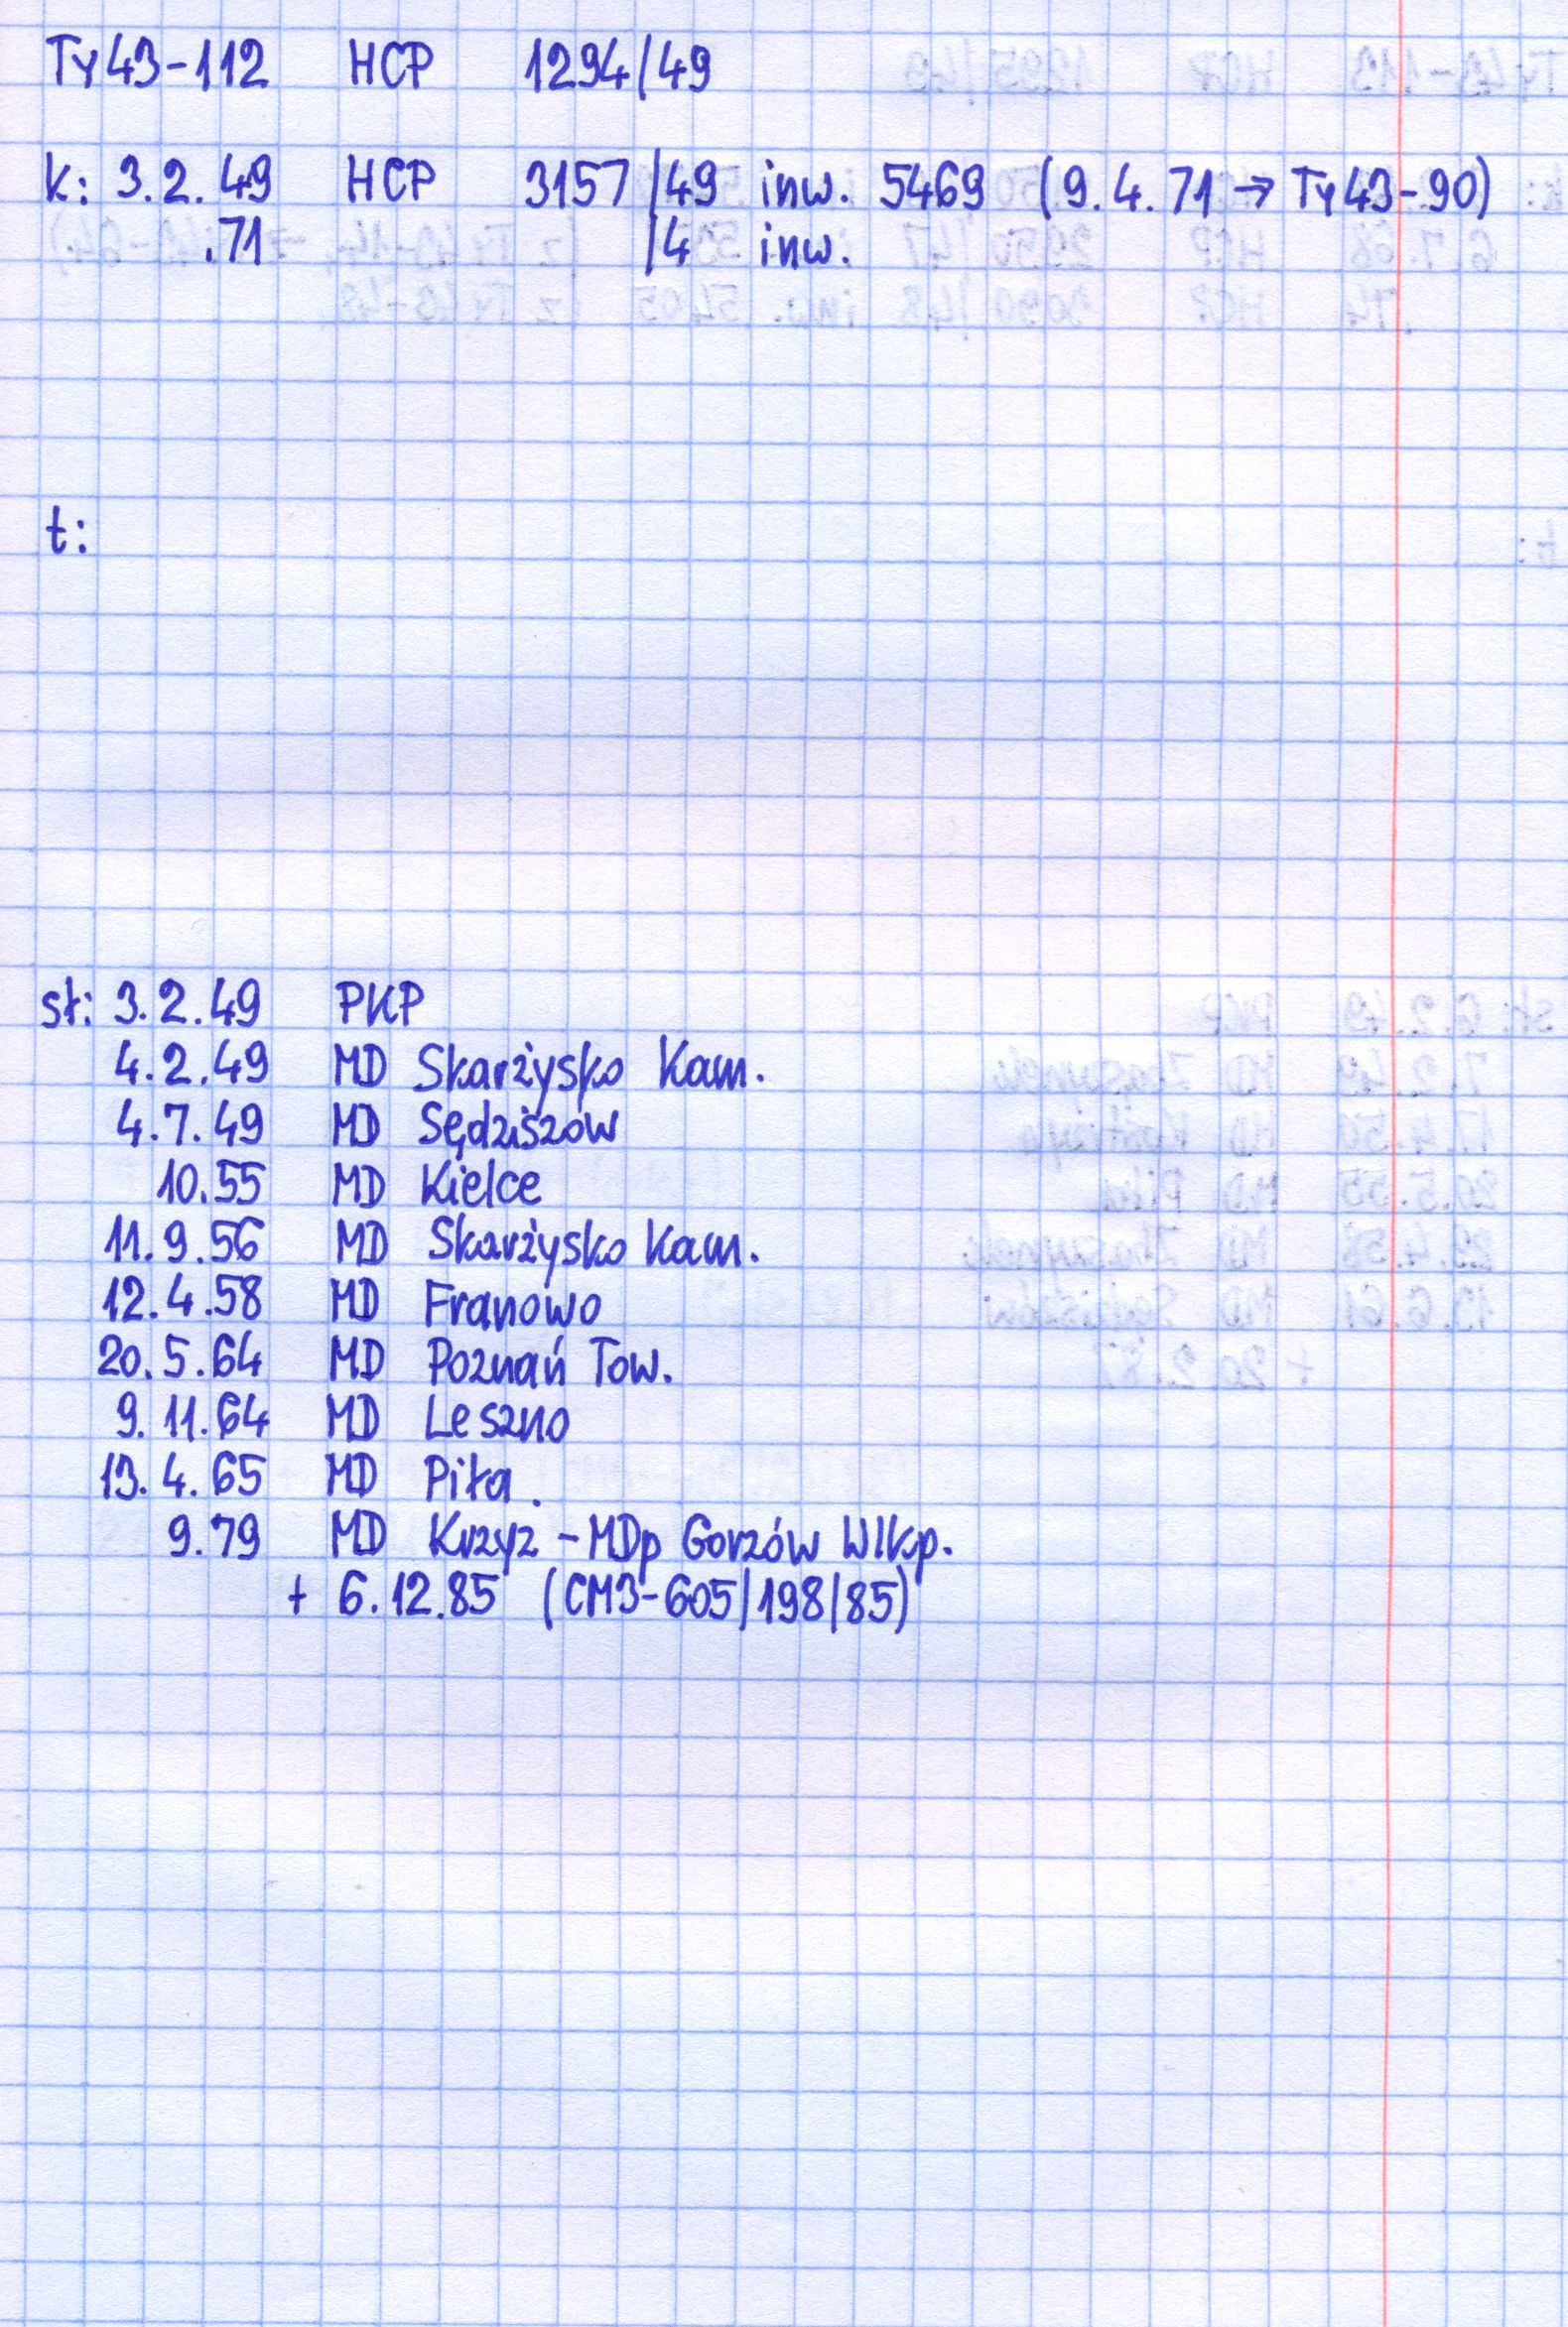 Ty43-112 HCP 1294/49
k: 3.2.49 HCP 3157/49 inw. 5469 (9.4.71 → Ty43-90)
.71 /4 inw.
t:
st: 3.2.49 PKP
4.2.49 MD Skarżysko Kam.
4.7.49 MD Sędziszów
10.55 MD Kielce
11.9.56 MD Skarżysko Kam.
12.4.58 MD Franowo
20.5.64 MD Poznań Tow.
9.11.64 MD Leszno
13.4.65 MD Piła.
9.79 MD Krzyż - MDp Gorzów Wlkp.
+ 6.12.85 (CM3-605/198/85)